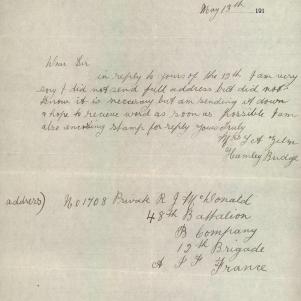 May 13th 191
Dear Sir
in reply to yours of the 12th I am very
sory I did not send full address but did not
know it is neccersry but am sending it down
& hope to recieve word as soon as possible I am
also encolsing stamp for reply Yours Truly
Mrs
Hamley Bridge
address) No 1708 Private R J McDonald
48th Battalion
B Company
12th Brigade
A I F France